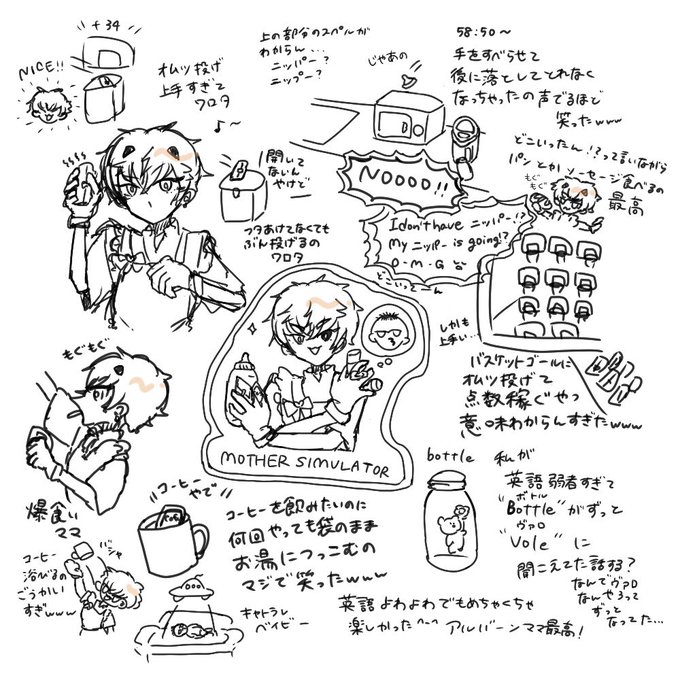 +34
NICE!!
オムツ投げ
上手すぎて
ワロタ
♪〜
上の部分のスペルが
わからん...
ニッパー?
ニップー?
じゃあの
58:50〜
手をすべらせて
後に落としてとれなく
なっちゃったの声でるほど
笑ったwww
どこいったん!?って言いながら
パンとかソーセージ食べるの
最高
もぐ
もぐ
NOOOO!!
I don't have ニッパー!?
My ニッパー is going!?
O-M-G
どこいってーん
開して
ないん
やけどー
フタあけてなくても
ぶん投げるの
ワロタ
しかも
上手い...
バスケットゴールに
オムツ投げて
点数稼ぐやつ
意味わからんすぎたwww
MOTHER SIMULATOR
もぐもぐ
爆食い
ママ
コーヒー
やで
コーヒーを飲みたいのに
何回やっても袋のまま
お湯につっこむの
マジで笑ったwww
コーヒー
浴びるの
ごうかい
すぎwww
バシャ
キャトラレ
ベイビー
bottle
私が
英語弱者すぎて
ボトル
"Bottle"がずっと
ヴァロ
"Vole"に
聞こえてた話する?
なんでヴァロ
なんやろって
ずっと
なってた...
英語よわよわでもめちゃくちゃ
楽しかった^^ アルバーンママ最高!